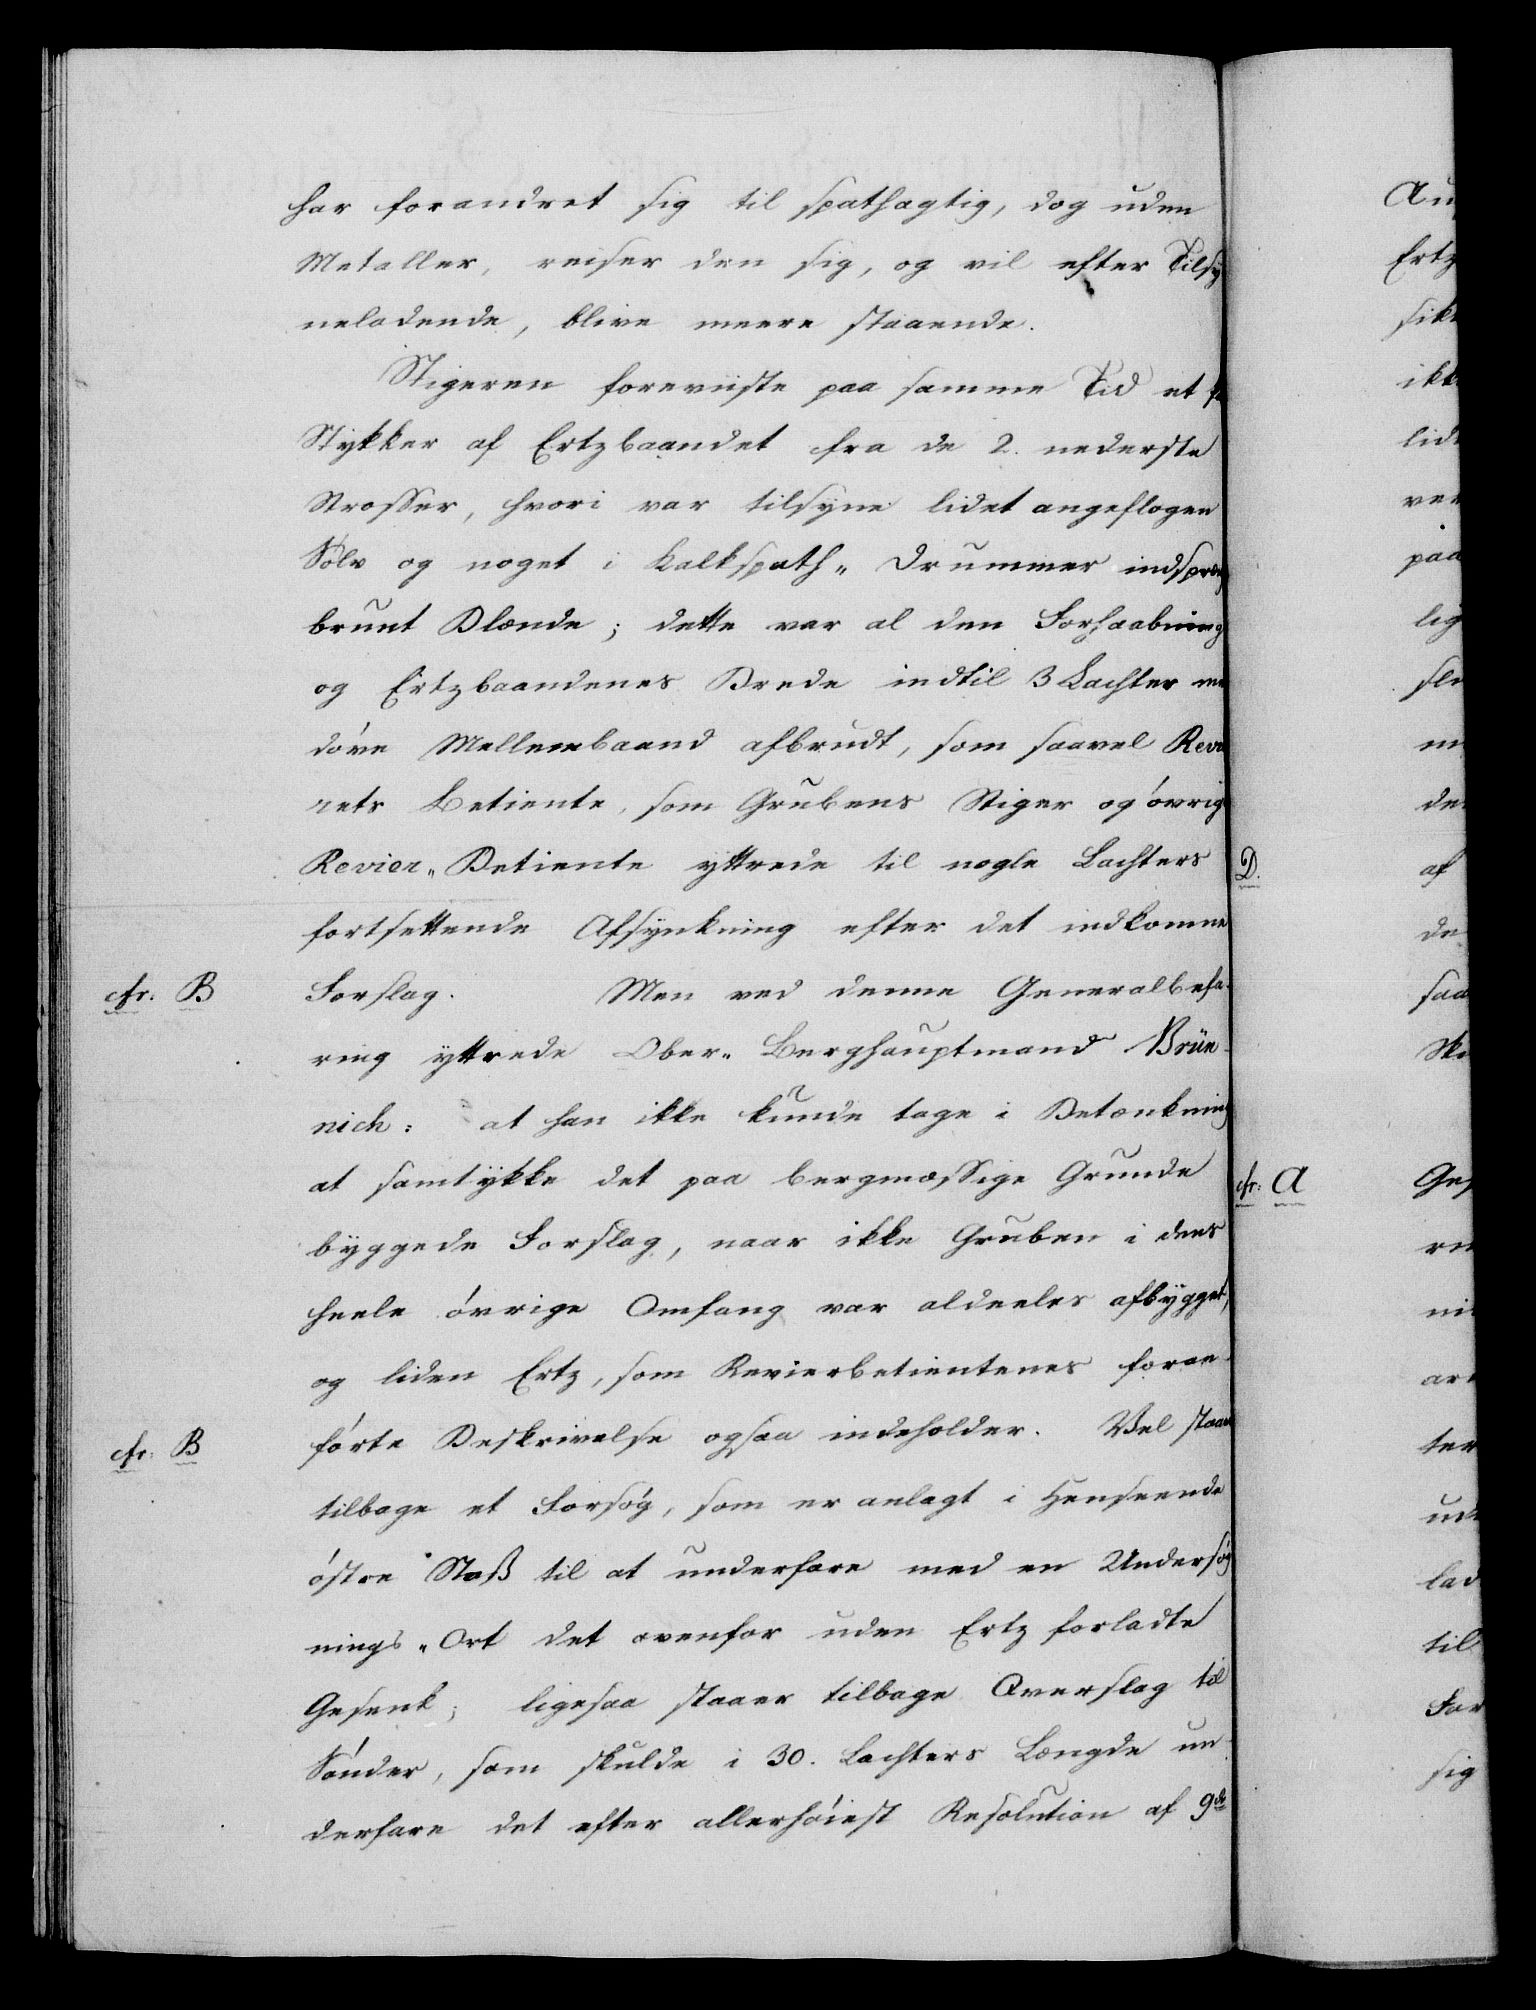 har forandret sig til spathagtig, dog uden
Metaller, reiser den sig, og vil efter Tilsy
neladende, blive meere staaende.
Stigeren foreviiste paa samme Tid et
Stykker af Ertzbaandet fra de 2. nederste
Strosser, hvori var tilsyne lidet angeflogen
Sølv og noget i Kalkspath„ Drummer indspreng
brunt Blende; dette var al den Forhaabning
og Ertzbaandenes Brede indtil 3 Lachter
døve Mellembaand afbrudt, som saavel Revi
rets Betiente, som Grubens Stiger og øvrig
Revier„ Betiente yttrede til nogle Lachters
fortsettende Afsynkning efter det indkomne
cfr: B Forslag. Men ved denne Generalbefa-
ring yttrede Ober„ Berghauptmand Brün-
nich: at han ikke kunde tage i Betænkning
at samtykke det paa bergmæssige Grunde
byggede Forslag, naar ikke Gruben i dens
heele øvrige Omfang var aldeeles afbygget,
og liden Ertz, som Revierbetientenes foran-
cfr: B førte Beskrivelse ogsaa indeholder. Vel staaer
tilbage et Forsøg, som er anlagt i Henseende
østre Stoß til at underfare med en Undersøg
nings„ Ort det ovenfor uden Ertz forladte
Gesenk; ligesaa staaer tilbage Overslag til
Sønder, som skulde i 30. Lachters Længde un-
derfare det efter allerhøiest Resolution af 9de
Au
Ertz
sik
ikk
lid
ver
paa
lig
de
D. af
de
saa
cfr: A Ges
ter
lad
til
For
sig